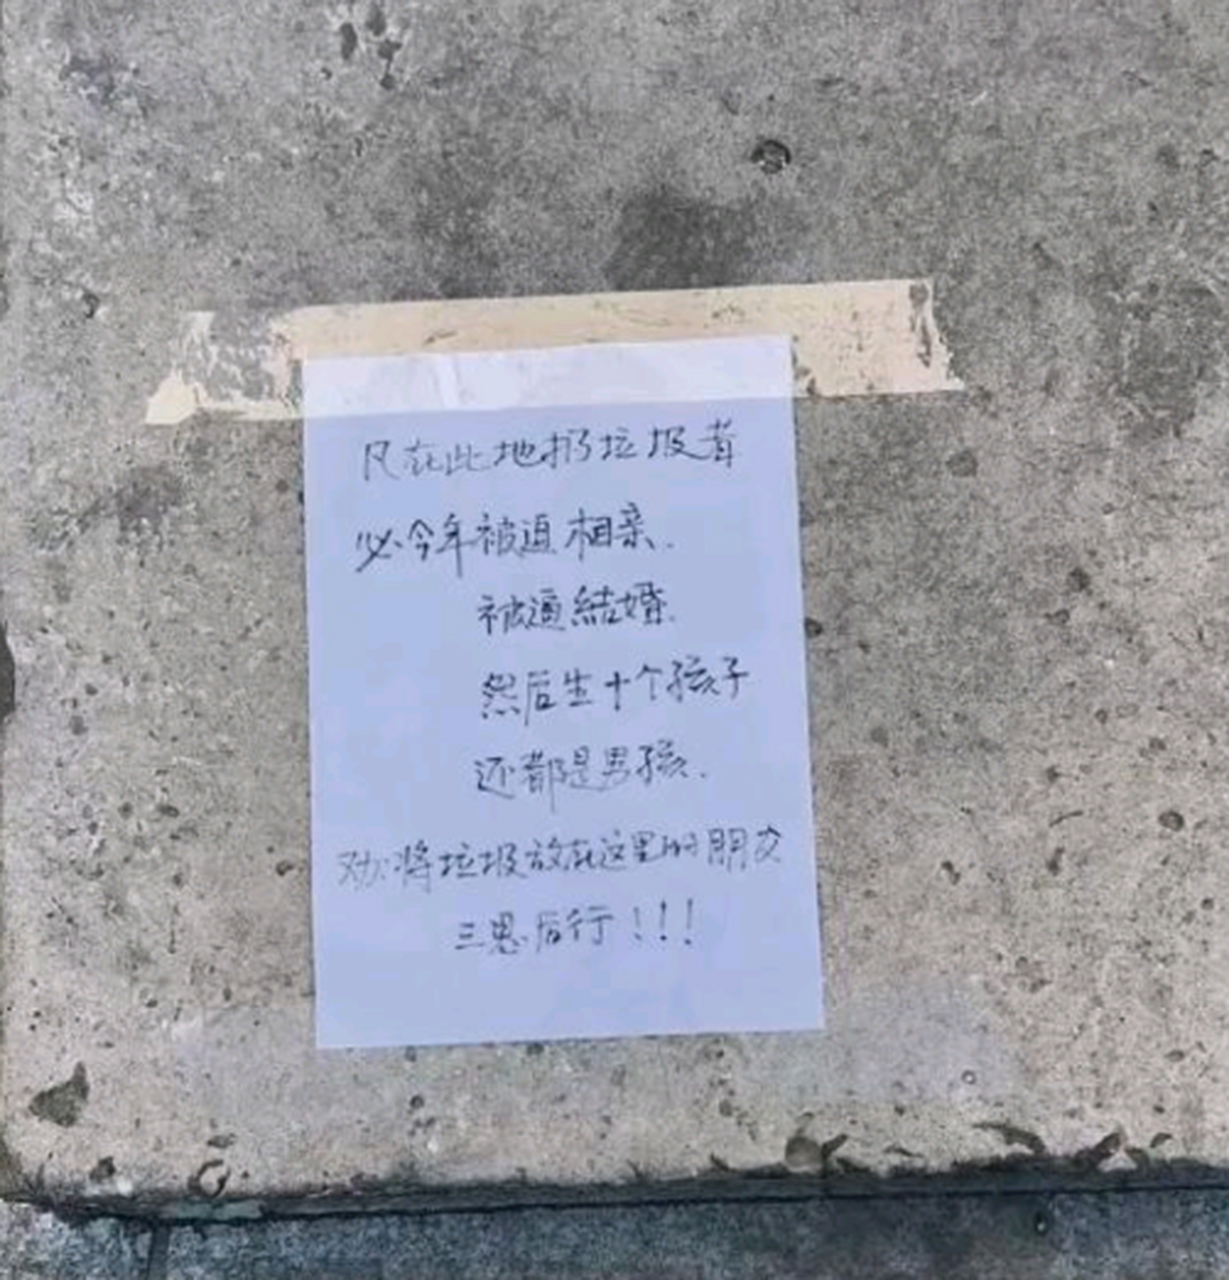 凡在此地扔垃圾者
必今年被逼相亲.
被逼結婚.
然后生十个孩子
还都是男孩.
劝将垃圾放在这里的朋友
三思后行！！！